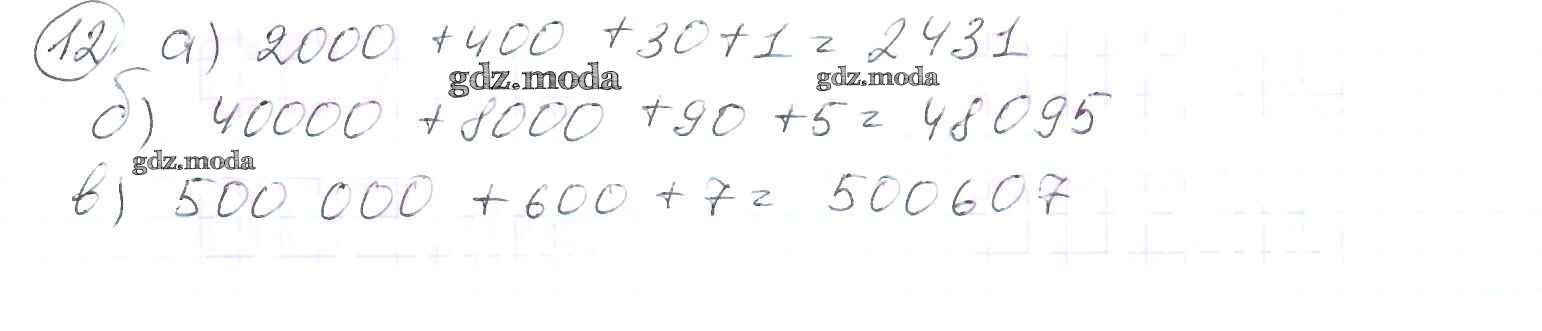 12. а) 2000 + 400 + 30 + 1 = 2431
gdz.moda gdz.moda
б) 40000 + 8000 + 90 + 5 = 48095
gdz.moda
в) 500 000 + 600 + 7 = 500607